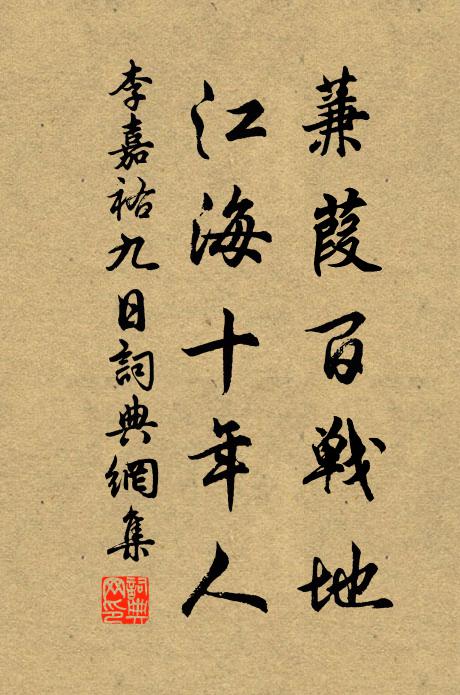 蒹葭百戰地
江海十年人
李嘉祐九日詞典網集
詞典网印